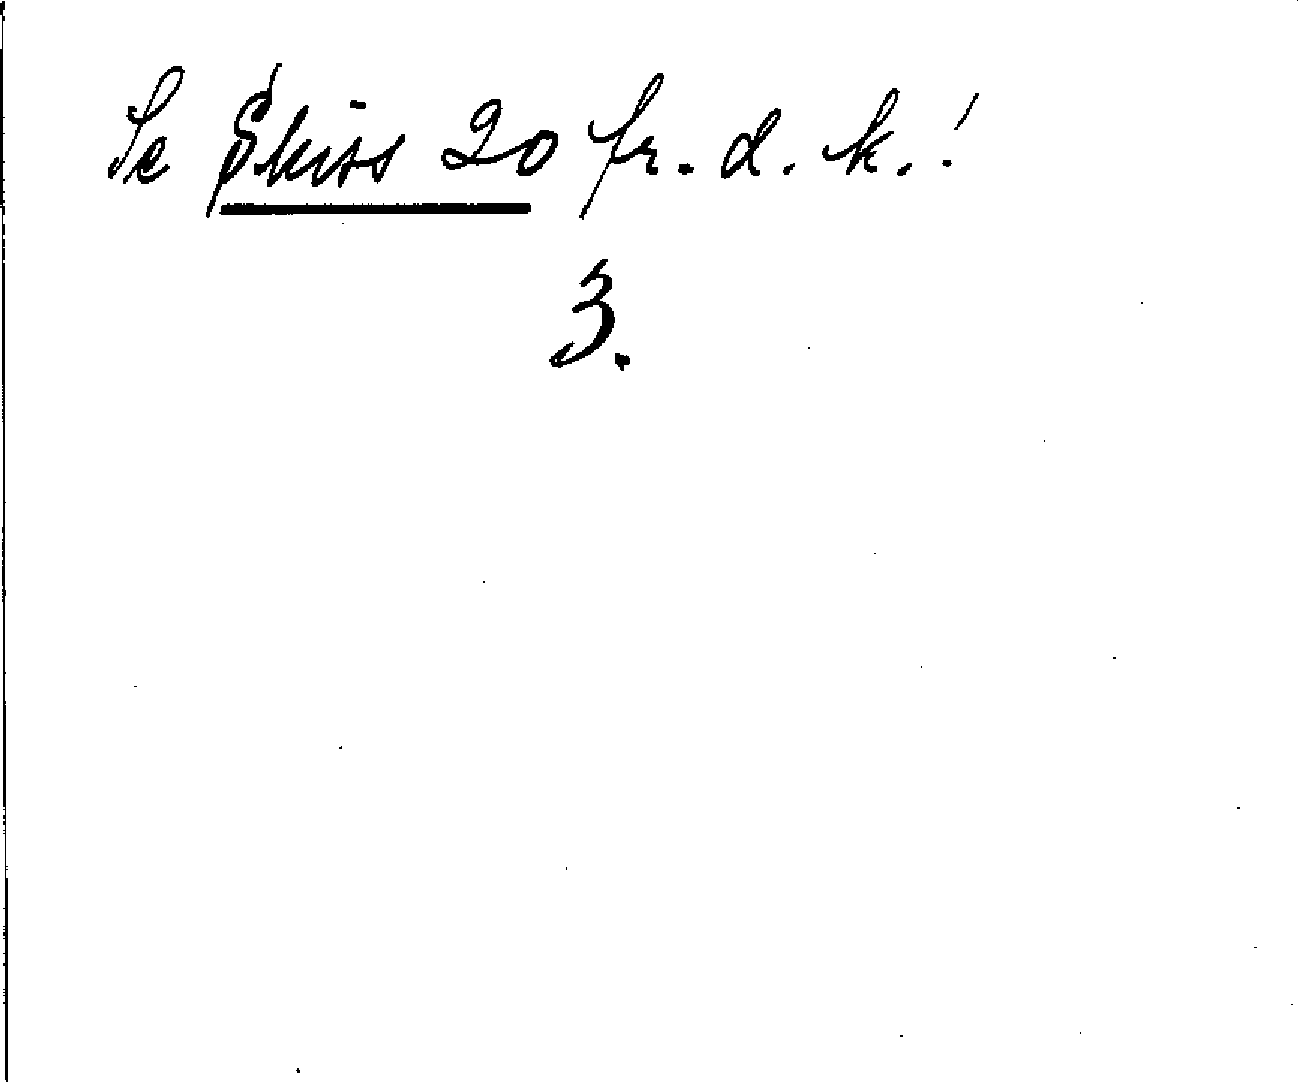 Se Skiss 20 fr. d. k.!
3.